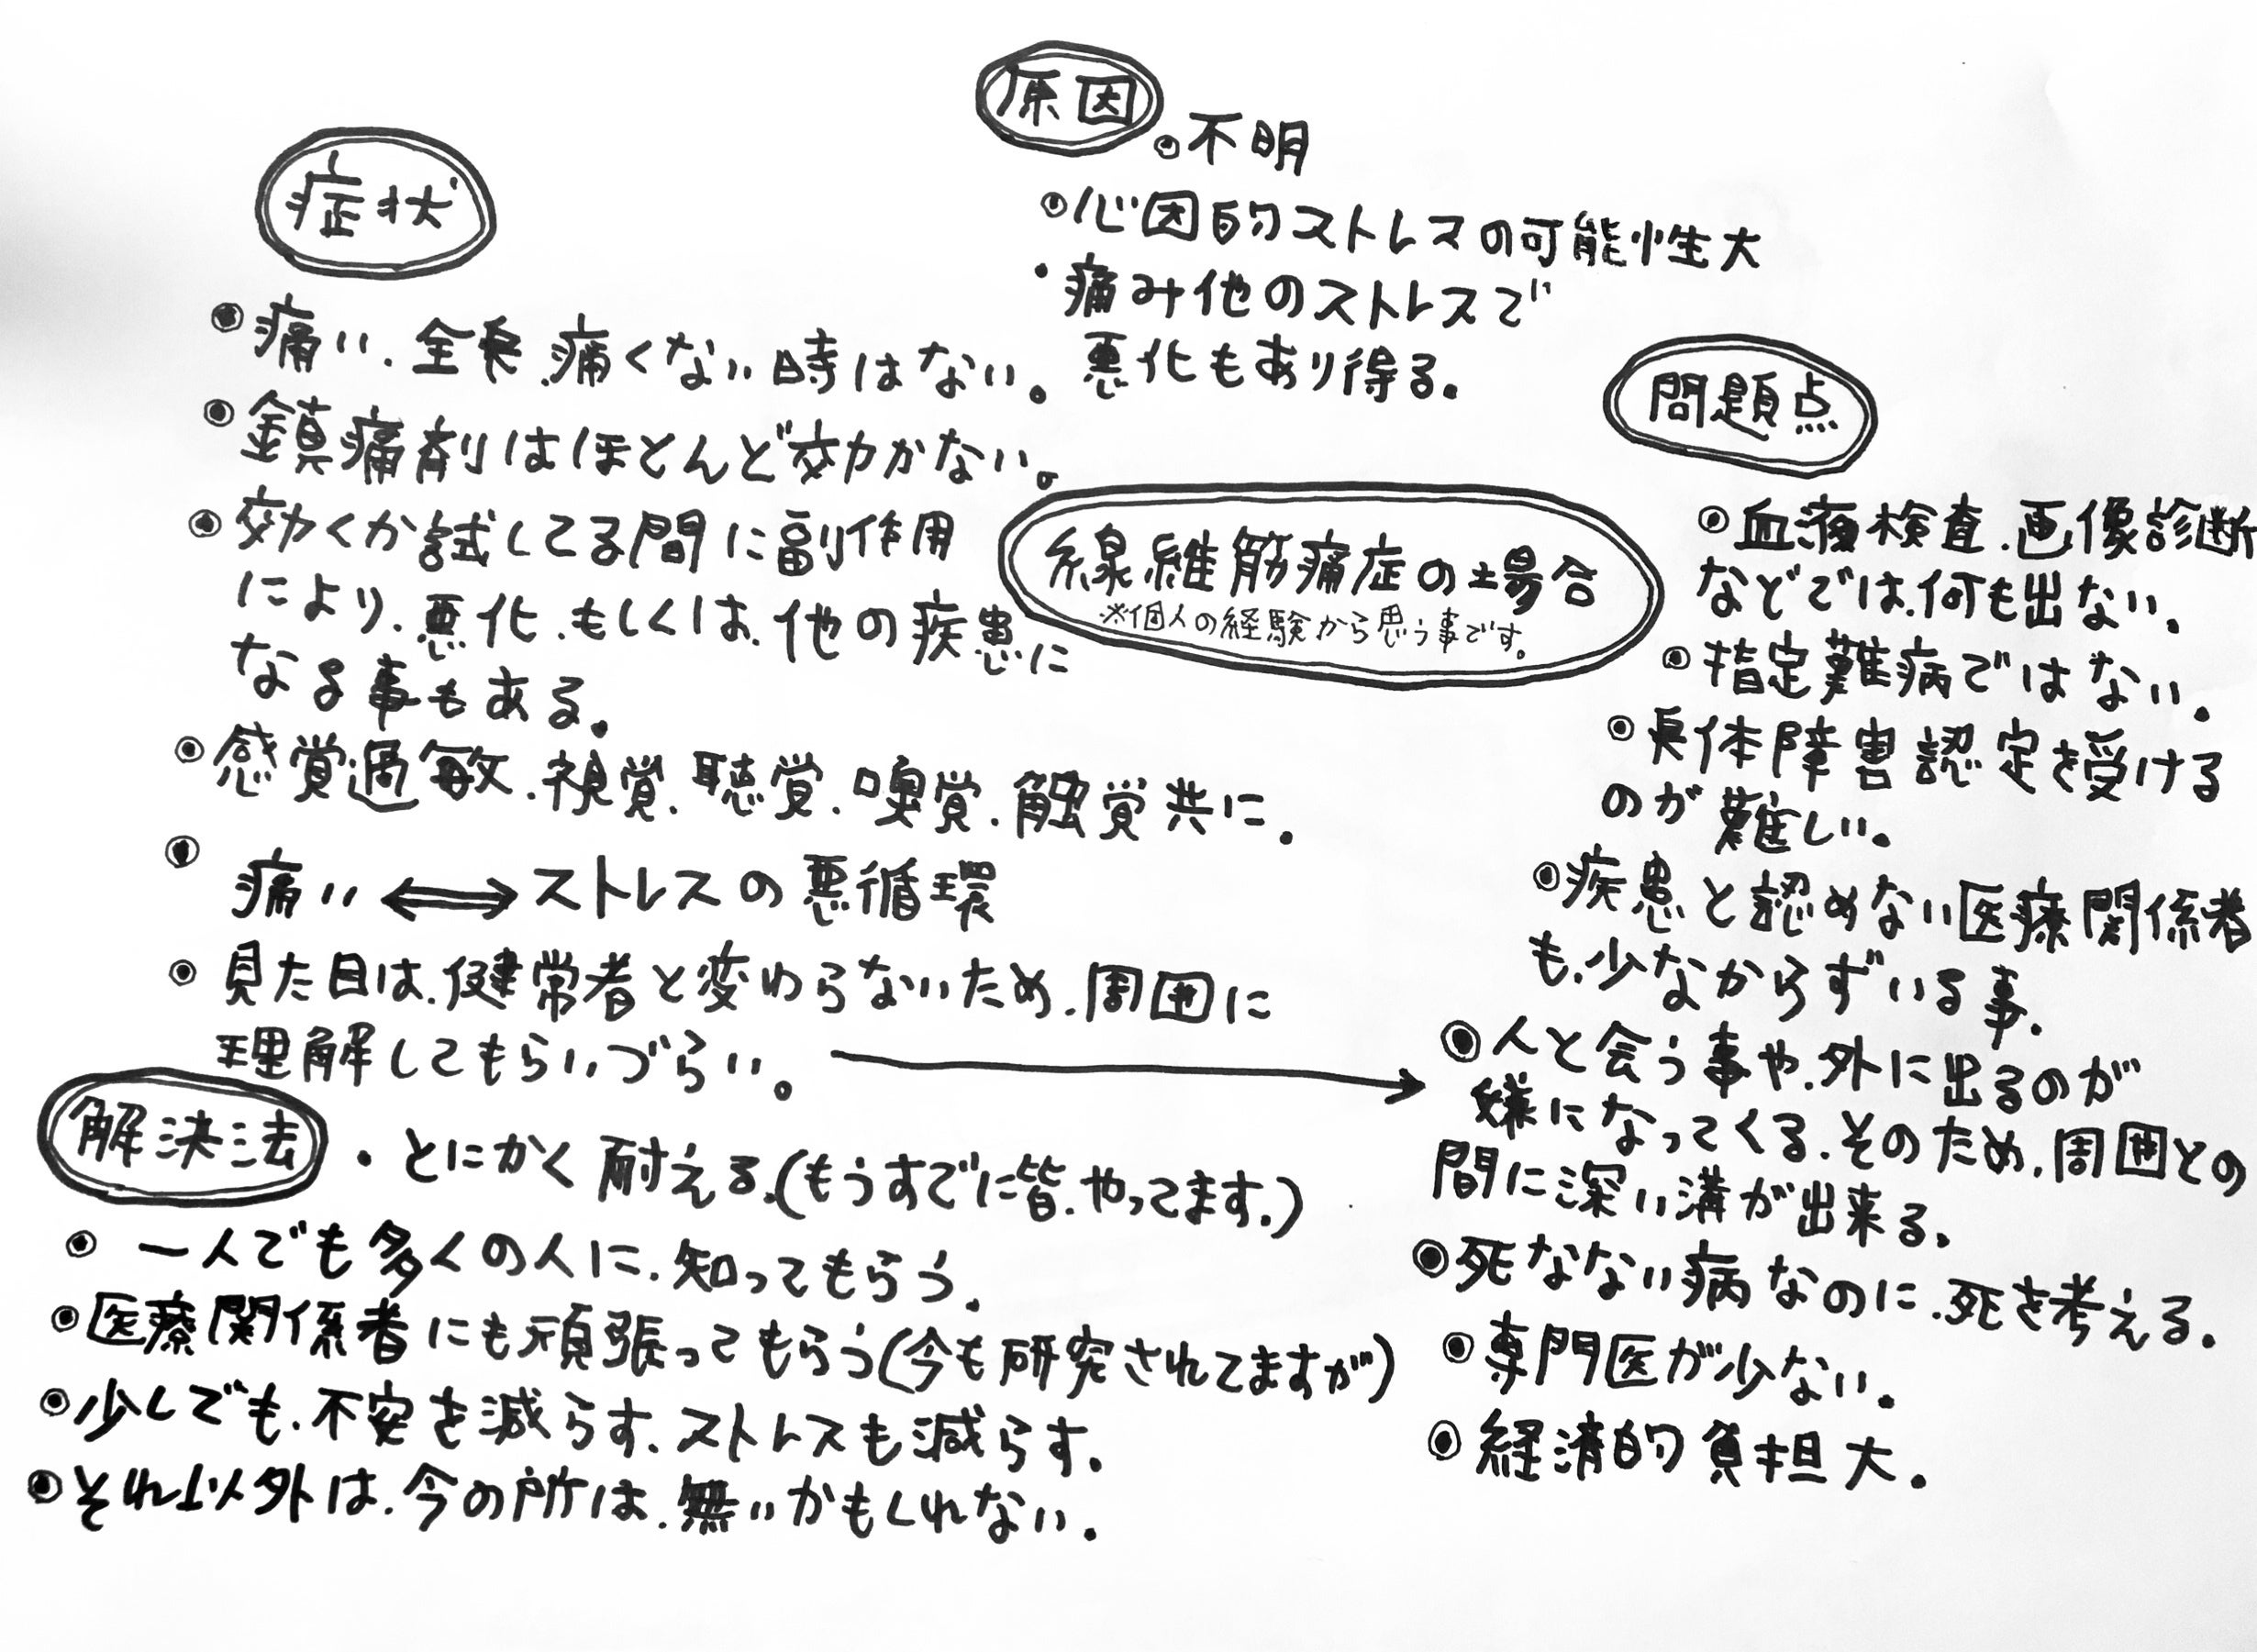 原因
◉不明
◉心因的ストレスの可能性大
・痛み他のストレスで
悪化もあり得る。
症状
◉痛い、全身、痛くない時はない。
◉鎮痛剤はほとんど効かない。
◉効くか試してる間に副作用
により、悪化、もしくは、他の疾患に
なる事もある。
◉感覚過敏、視覚、聴覚、嗅覚、触覚共に。
◉痛い⟺ストレスの悪循環
◉見た目は、健常者と変わらないため、周囲に
理解してもらいづらい。→
線維筋痛症の場合
※個人の経験から思う事です。
問題点
◉血液検査、画像診断
などでは、何も出ない。
◉指定難病ではない。
◉身体障害認定を受ける
のが難しい。
◉疾患と認めない医療関係者
も、少なからずいる事。
◉人と会う事や、外に出るのが
嫌になってくる。そのため、周囲との
間に深い溝が出来る。
◉死なない病なのに、死を考える。
◉専門医が少ない。
◉経済的負担大。
解決法
・とにかく耐える。(もうすでに皆、やってます。)
◉一人でも多くの人に、知ってもらう。
◉医療関係者にも頑張ってもらう(今も研究されてますが)
◉少しでも、不安を減らす、ストレスも減らす。
◉それ以外は、今の所は、無いかもしれない。